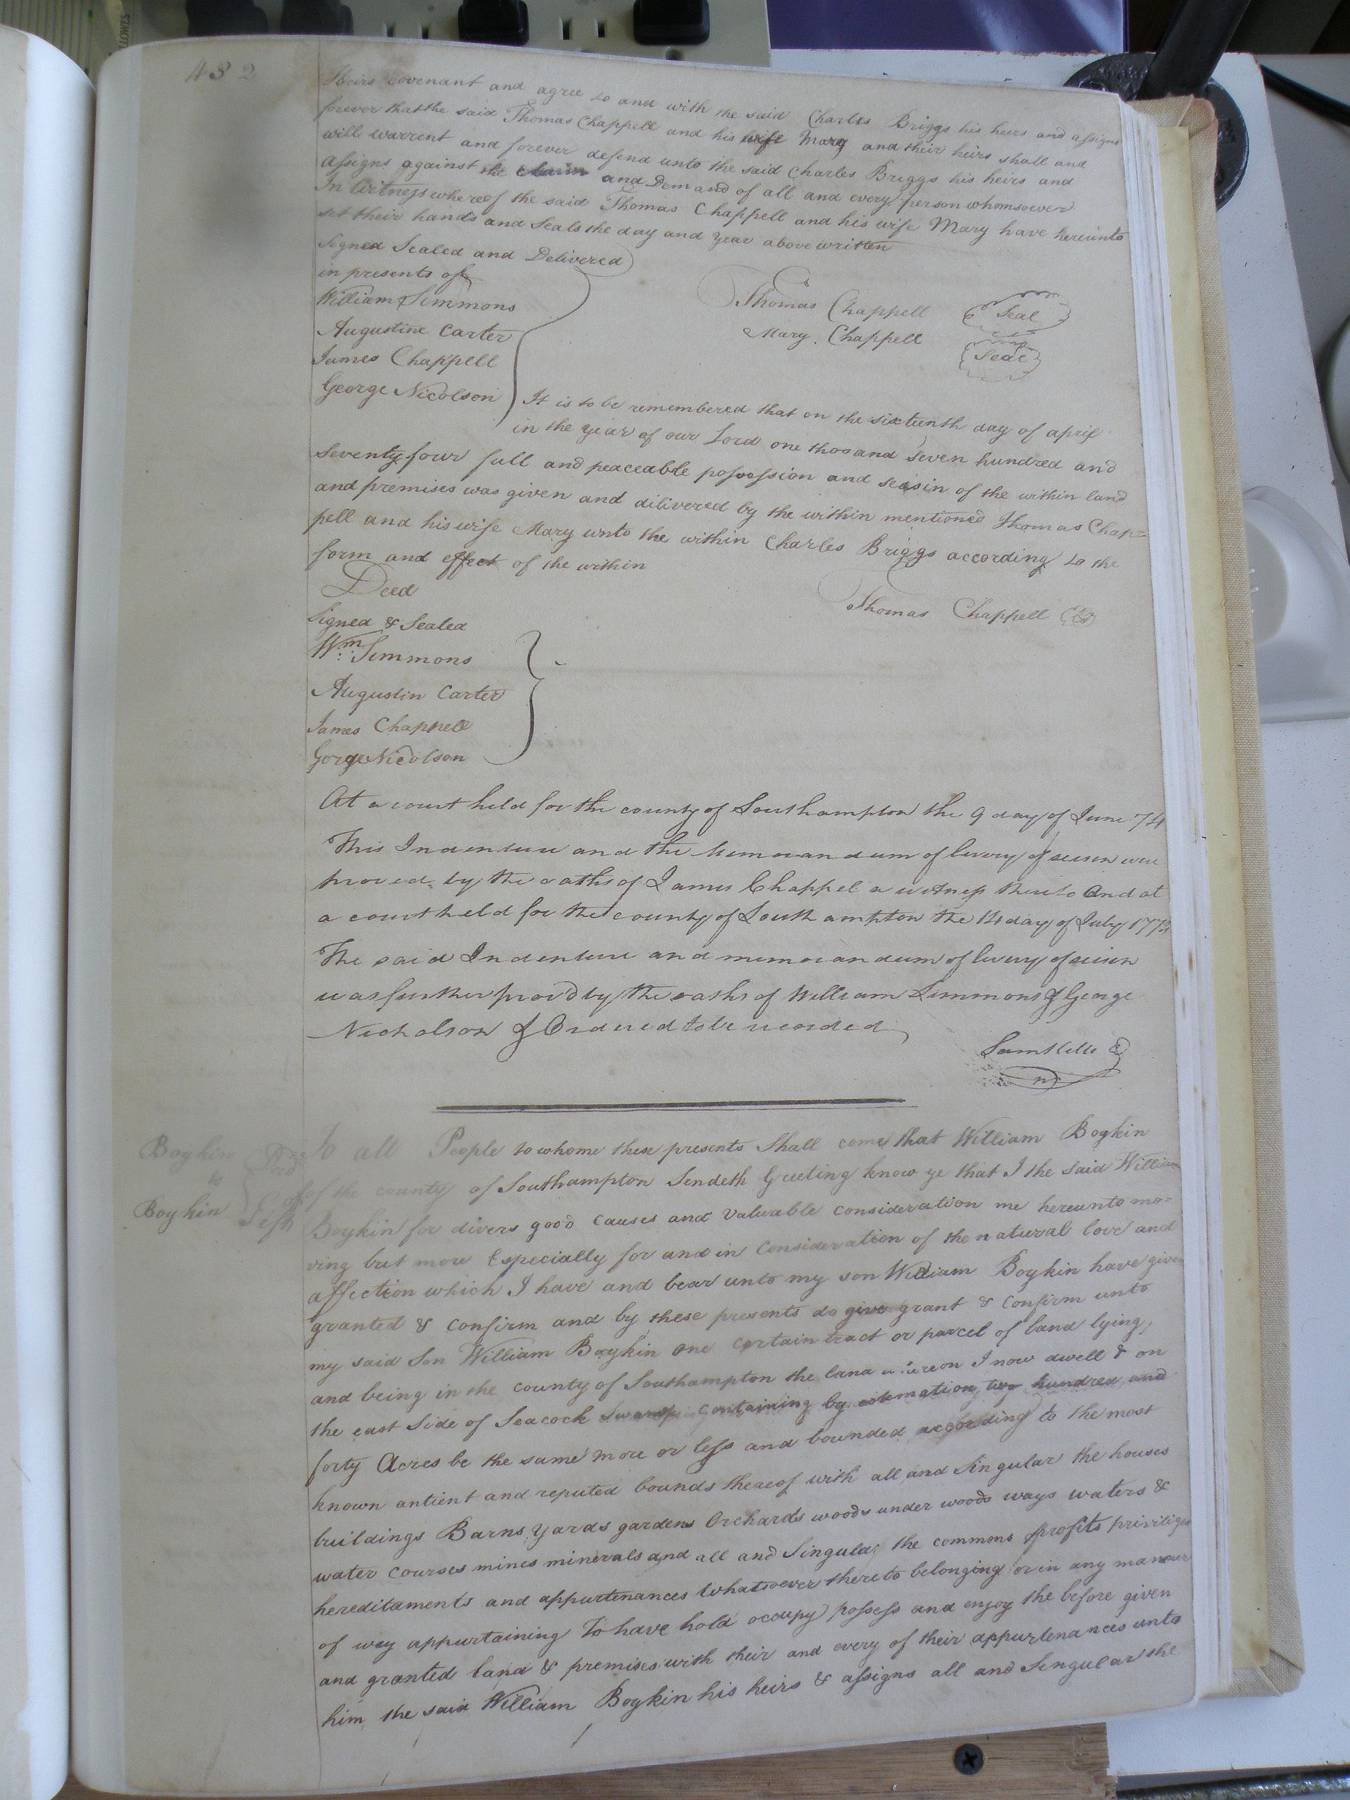 432
Heirs covenant and agree to and with the said Charles Briggs his heirs and assigns
forever that the said Thomas Chappell and his wife Mary and their heirs shall and
will warrent and forever defend unto the said Charles Briggs his heirs and
assigns against the claim and Demand of all and every person whomsoever
In Witness whereof the said Thomas Chappell and his wife Mary have hereunto
set their hands and Seals the day and year above written
Signed Sealed and Delivered
in presents of
William Simmons
Augustine Carter
James Chappell
George Nicolson
Thomas Chappell Seal
Mary Chappell Seal
It is to be remembered that on the sixteenth day of april
in the year of our Lord one thosand seven hundred and
seventy four full and peaceable possession and seasin of the within land
and premises was given and dilivered by the within mentioned Thomas Chap=
pell and his wife Mary unto the within Charles Briggs according to the
form and effect of the within
Deed
Thomas Chappell
Signed & Sealed
Wm Simmons
Augustin Carter
James Chappell
Gorge Nicolson
At a court held for the county of Southampton the 9 day of June 74
This Indenture and the Memorandum of livery of seisen were
proved by the oaths of James Chappel a witness thereto And at
a court held for the county of Southampton the 14 day of July 177
The said Indenture and memorandum of livery of seisen
was further prov'd by the oaths of William Simmons & George
Nicholson & Ordered to be recorded
Sam Kello
Boykin
to
Boykin
Deed
Gift
To all People to whome these presents Shall come that William Boykin
of the county of Southampton Sendeth Greeting know ye that I the said William
Boykin for divers good causes and Valuable consideration me hereunto mo-
ving but more Especially for and in Consideration of the natural love and
affection which I have and bear unto my son William Boykin have given
granted & confirm and by these presents do give grant & Confirm unto
my said Son William Boykin one certain tract or parcel of land lying,
and being in the county of Southampton the land whereon I now dwell & on
the east Side of Seacock Swamp containing by estemation two hundred and
forty Acres be the same more or less and bounded according to the most
known antient and reputed bounds thereof with all and Singular the houses
buildings Barns yards gardens Orchards woods under woods ways waters &
water courses mines minerals and all and Singular the commons profits priviliges
hereditaments and appurtenances Whatsoever thereto belonging or in any manner
of way appurtaining To have hold occupy possess and enjoy the before given
and granted land & premises with their and every of their appurtenances unto
him the said William Boykin his heirs & assigns all and Singular the